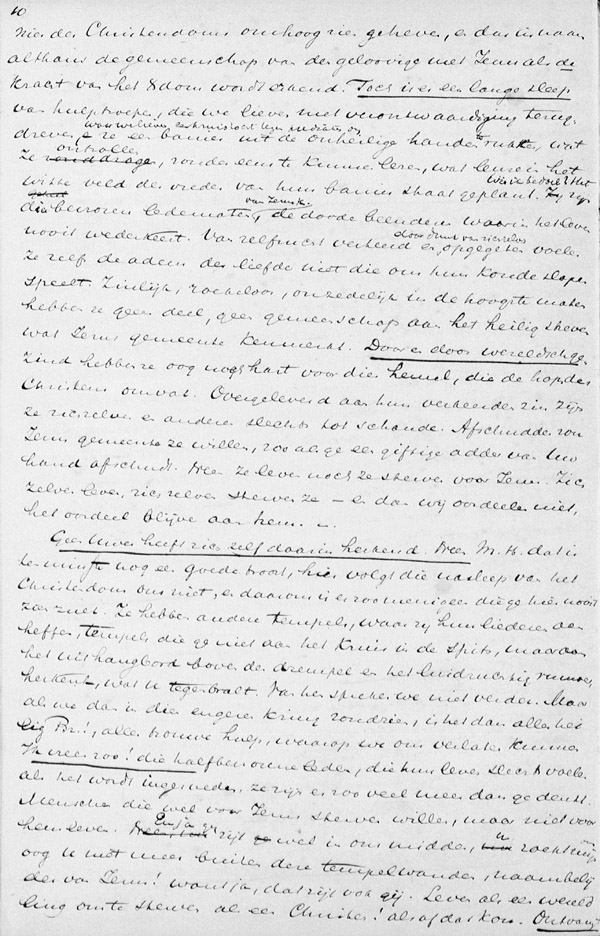 10
Nier des Christendoms omhoog zien geheven, en dan is naar
althans de gemeenschap van den geloovige met Jezus als de
kracht van het Xdom wordt erkend. Toch is er een lange sleep
van hulptroepen, die we liever met verontwaardiging terug
dreven, en ze een banier uit de onheilige handen rukten, wat
ontrollen
ze zonder eens te kunnen lezen, wat leuze in het
witte veld des vredes van hun banier staat geplant. Zij zijn
van Jezus K.
die bevroren ledematen, de dorde beenderen waarin het leven
nooit wederkeert. Van zelfzucht verteerd en opgegeten voelen
ze zelf de adem der liefde niet die om hun koude slapen
speelt. Zinlijk, roekeloos, onzedelijk in de hoogste mate
hebben ze geen deel, geen gemeenschap aan het heilig sterven
wat Jezus gemeente kenmerkt. Door en door wereldschge
zind hebben ze oog noch hart voor die hemel, die de hoop des
Christens omvat. Overgeleverd aan hun verkeerden zin, zijn
ze zichzelven en anderen slechts tot schande. Afschudden zou
Jezus gemeente ze willen, zooals ge een giftige adder van uw
hand afschudt. Neen ze leven noch ze sterven voor Jezus. Zich
zelven leven, zich zelven sterven ze – en dan wij oordeelen niet,
het oordeel blijve aan hem. –
Geen Uwer heeft zich zelf daarin herkend. Neen M. H. dat is
ten minste nog een goede troost, hier volgt die nasleep van het
Christendom ons niet, en daarom is er zoo menigeen die ge hier nooit
zaagt. Ze hebben andere tempels, waar zij hun liederen aan
heffen, tempels die ge niet aan het Kruis in de spits, maar aan
het uithangbord boven den drempel en het luidruchtig rumoer
herkent, wat u tegenbralt. Van hen spreken we niet verder. Maar
als we dan in die engere kring rondzien, is het dan alles hei
lig Br.!, alles trouwe hulp, waarop we ons verlaten kunnen
Ik vrees zoo! die halfbevroren leden, die hun leven slechts voelen
als het wordt ingesneden, ze zijn er zoo veel meer dan ge denkt.
Menschen die wel voor Jezus sterven willen, maar niet voor
hem leven. En ja ze zijn wel in ons midden, u zocht mijn
oog u niet meer buiten deze tempelwanden, naambelij
der van Jezus! want ja, dat zijt ook gij. Leven als een wereld
ling om te sterven als een Christen! als of dat kon. Ontvang